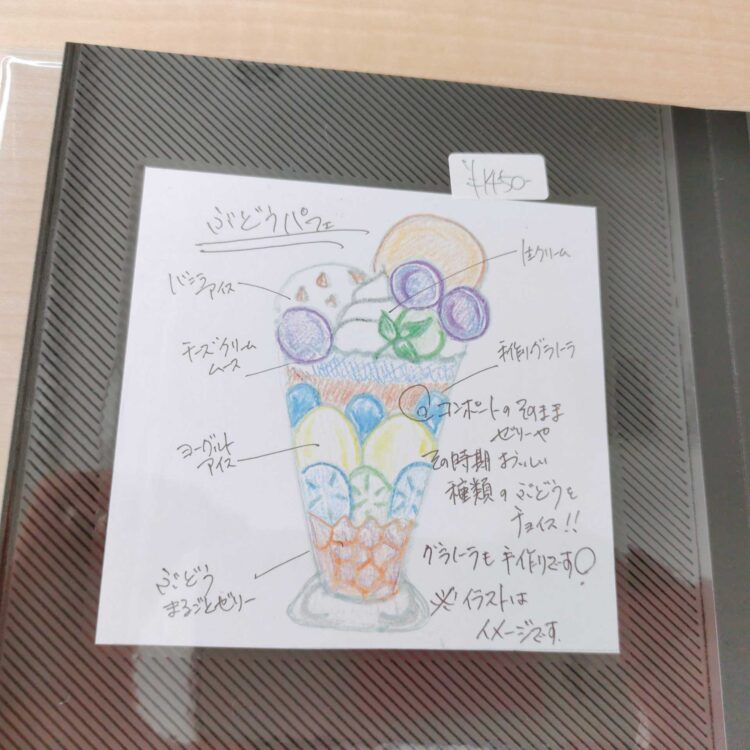 ¥1450-
ぶどうパフェ
バニラ
アイス
生クリーム
チーズクリーム
ムース
手作りグラノーラ
ヨーグルト
アイス
コンポートのそのまま
ゼリーや
その時期おいしい
種類のぶどうを
チョイス!!
グラノーラも手作りです
ぶどう
まるごとゼリー
※イラストは
イメージです。